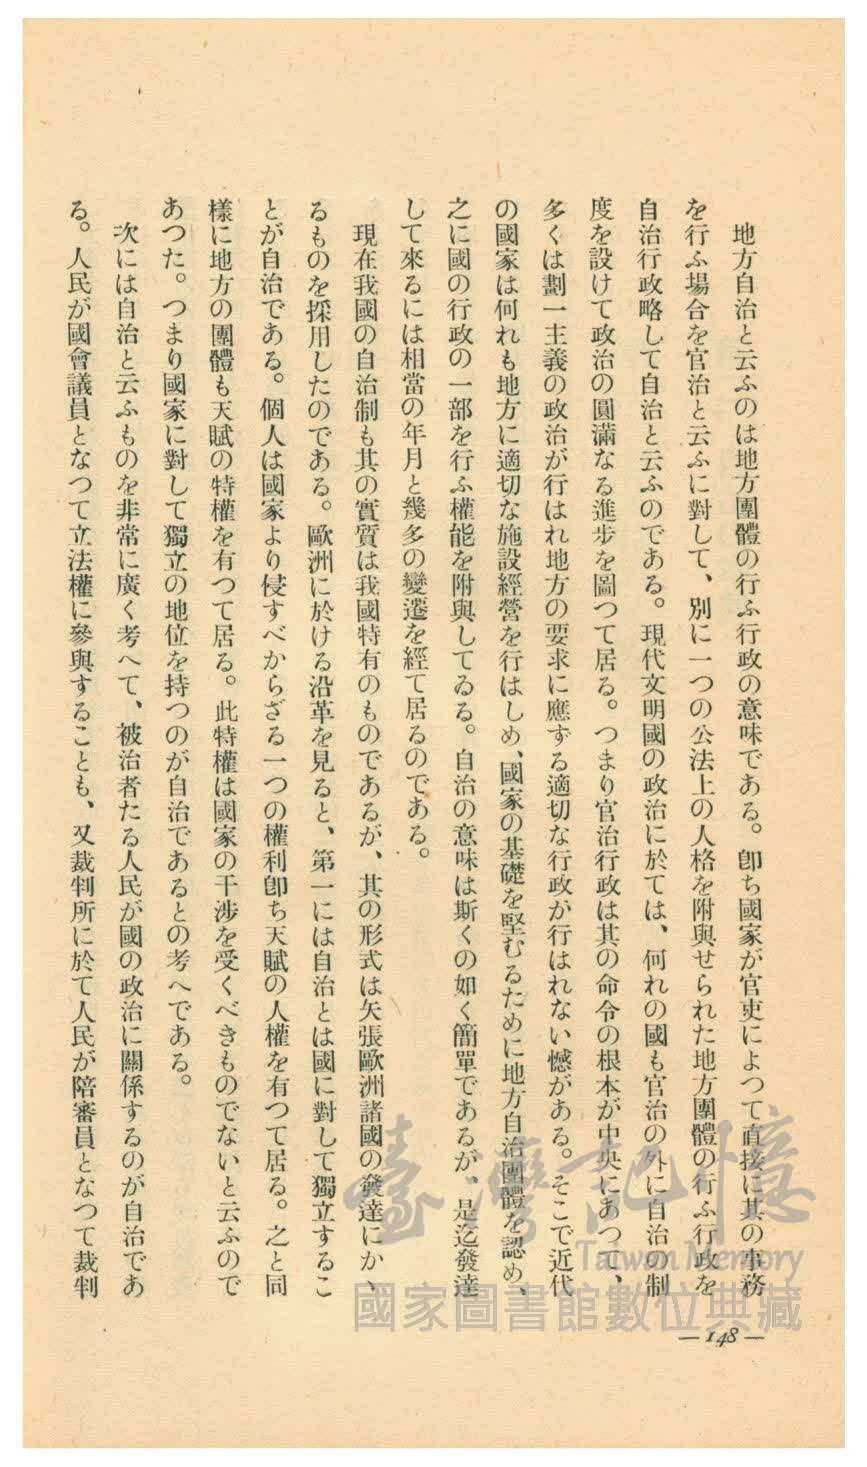 地方自治と云ふのは地方團體の行ふ行政の意味である。卽ち國家が官吏によつて直接に其の事務
を行ふ場合を官治と云ふに對して、別に一つの公法上の人格を附與せられた地方團體の行ふ行政を
自治行政略して自治と云ふのである。現代文明國の政治に於ては、何れの國も官治の外に自治の制
度を設けて政治の圓滿なる進步を圖つて居る。つまり官治行政は其の命令の根本が中央にあつて、
多くは劃一主義の政治が行はれ地方の要求に應ずる適切な行政が行はれない憾がある。そこで近代
の國家は何れも地方に適切な施設經營を行はしめ、國家の基礎を堅むるために地方自治團體を認め、
之に國の行政の一部を行ふ權能を附與してゐる。自治の意味は斯くの如く簡單であるが、是迄發達
して來るには相當の年月と幾多の變遷を經て居るのである。
現在我國の自治制も其の實質は我國特有のものであるが、其の形式は矢張歐洲諸國の發達にかゝ
るものを採用したのである。歐洲に於ける沿革を見ると、第一には自治とは國に對して獨立するこ
とが自治である。個人は國家より侵すべからざる一つの權利卽ち天賦の人權を有つて居る。之と同
樣に地方の團體も天賦の特權を有つて居る。此特權は國家の干涉を受くべきものでないと云ふので
あつた。つまり國家に對して獨立の地位を持つのが自治であるとの考へである。
次には自治と云ふものを非常に廣く考へて、被治者たる人民が國の政治に關係するのが自治であ
る。人民が國會議員となつて立法權に參與することも、又裁判所に於て人民が陪審員となつて裁判
—148—
臺灣記憶
Taiwan Memory
國家圖書館數位典藏